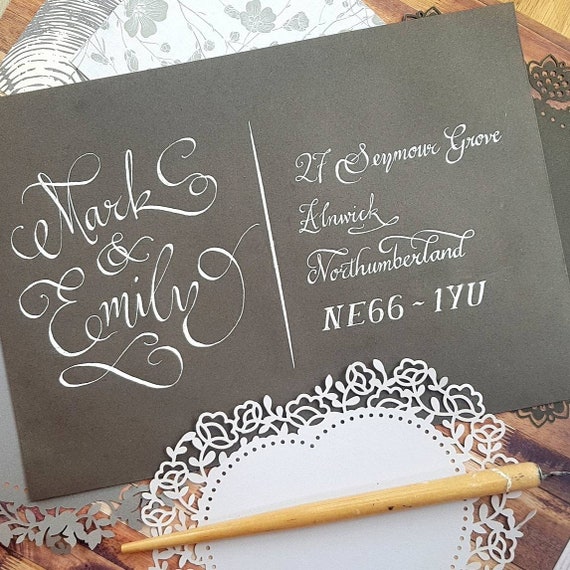 Mark
&
Emily
27 Seymour Grove
Alnwick
Northumberland
NE66 ~ 1YU